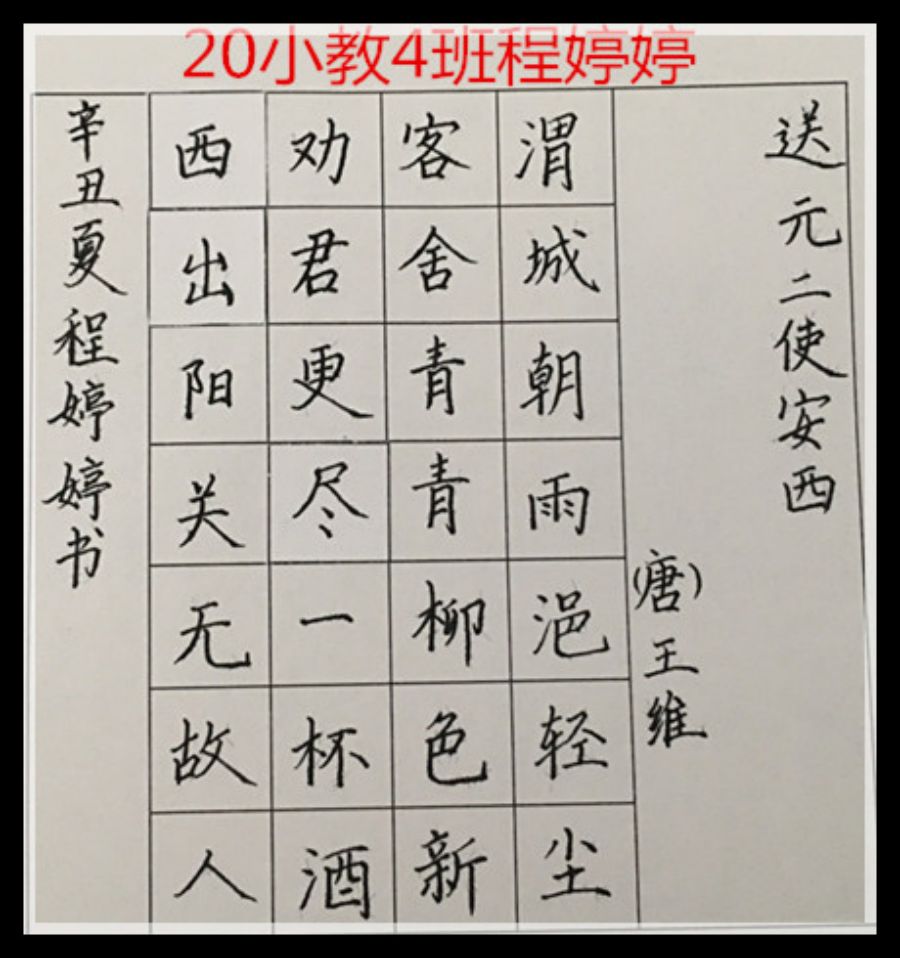 20小教4班程婷婷
送元二使安西
(唐)王维
渭城朝雨浥轻尘
客舍青青柳色新
劝君更尽一杯酒
西出阳关无故人
辛丑夏程婷婷书